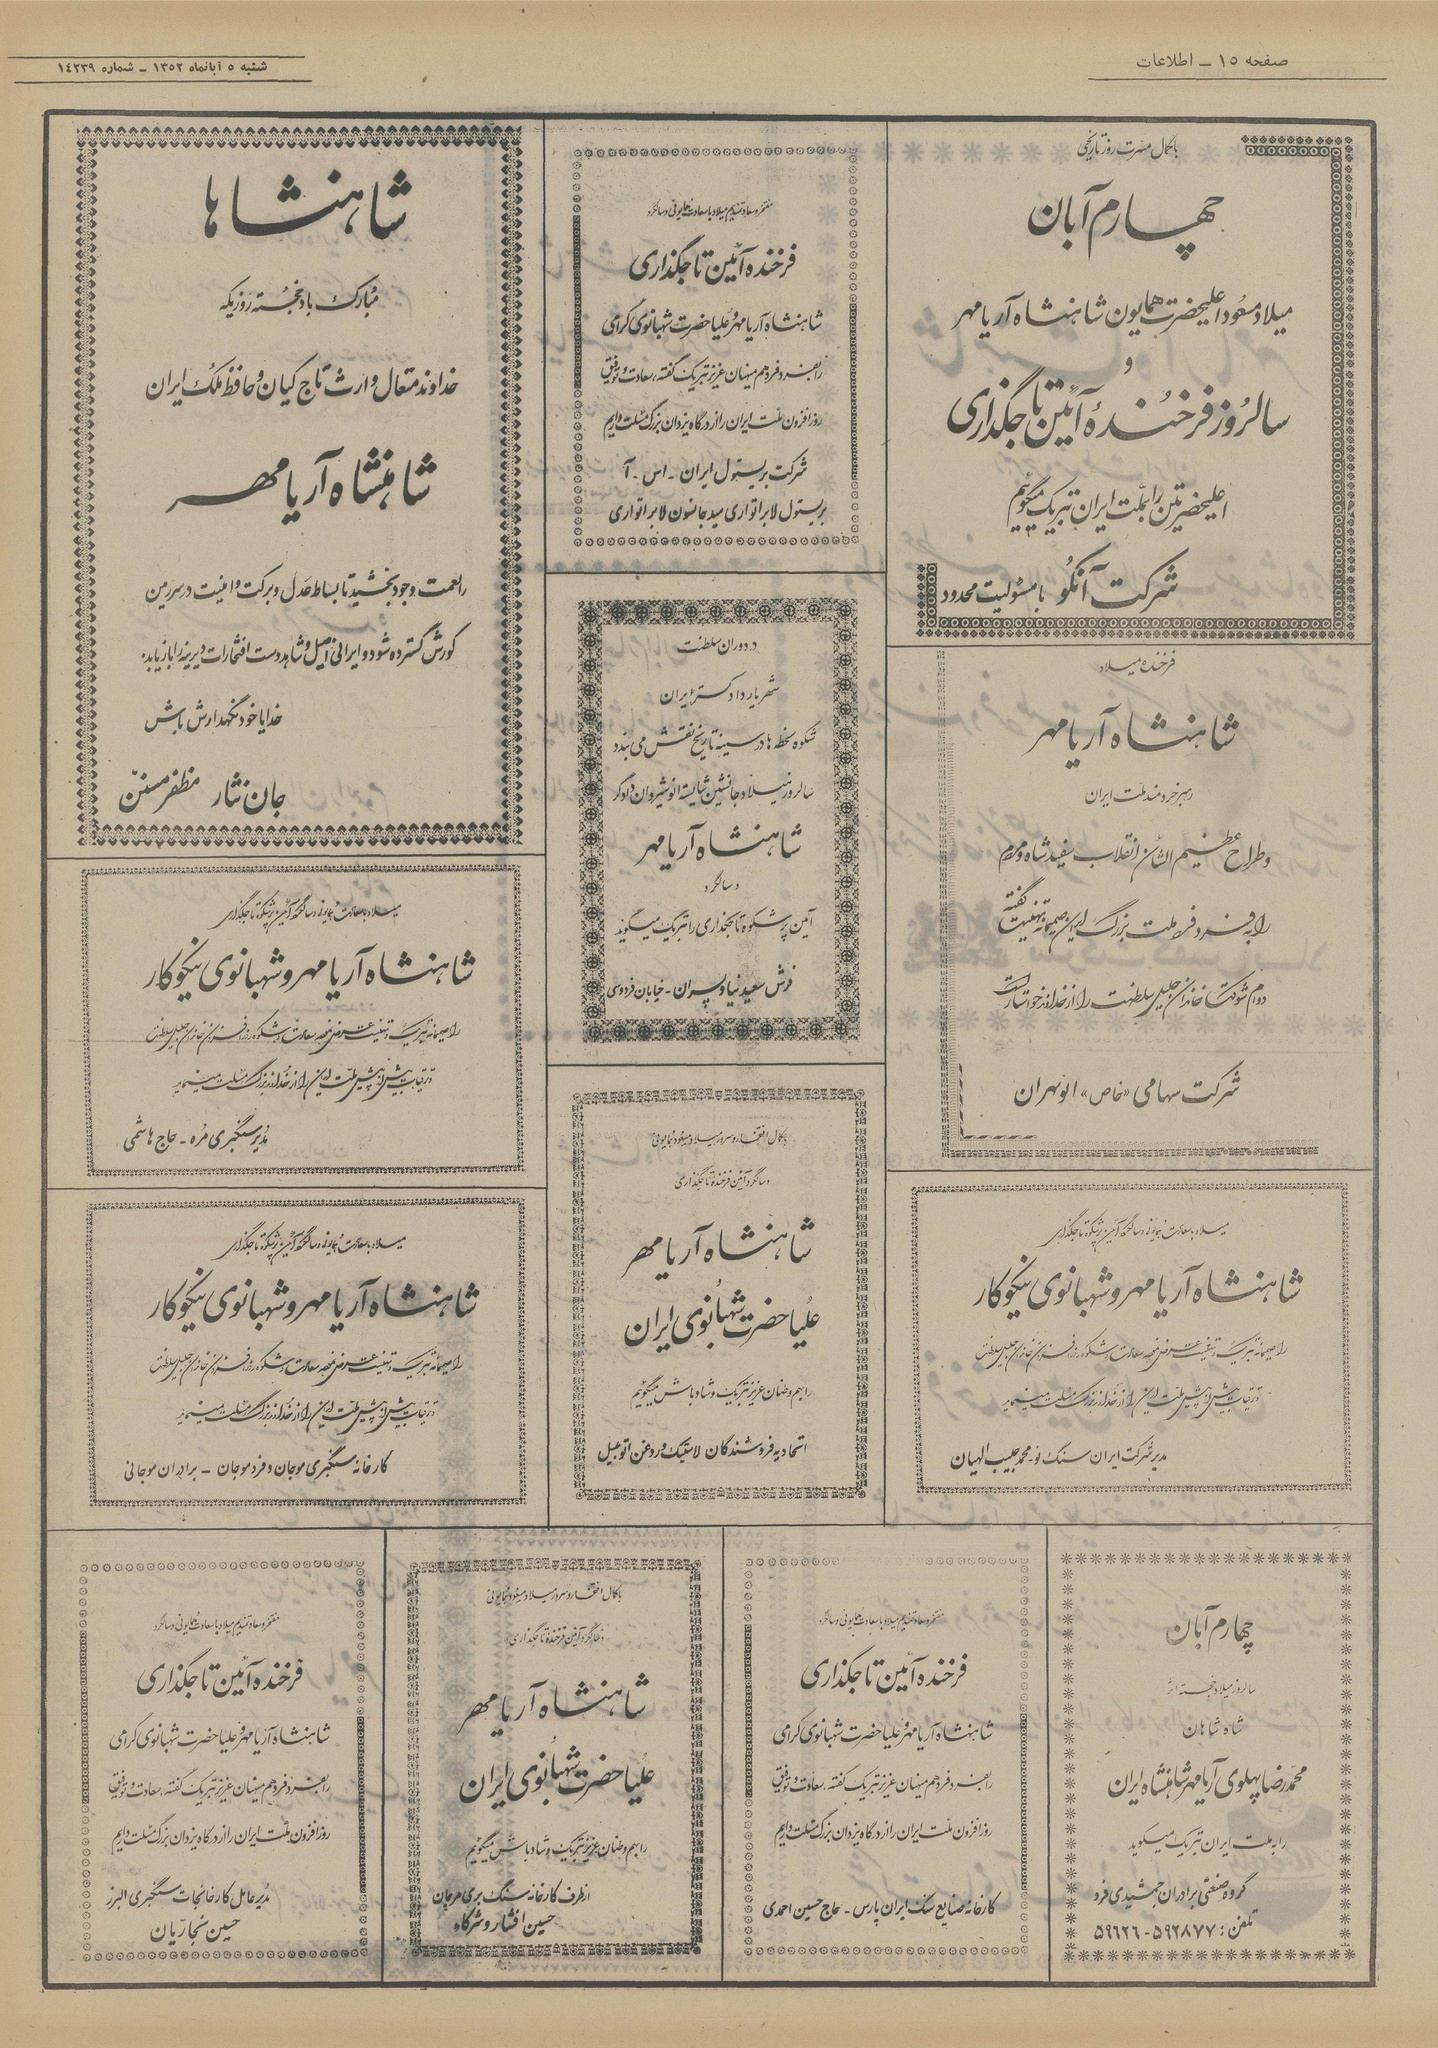 صفحه ۱۵ ــ اطلاعات
شنبه ۵ آبانماه ۱۳۵۲ ــ شماره ۱۴۲۳۹
با کمال مسرت روز تاریخی
چهارم آبان
میلاد مسعود اعلیحضرت همایون شاهنشاه آریامهر
و
سالروز فرخندهٔ آئین تاجگذاری
اعلیحضرتین را بملت ایران تبریک میگوئیم
شرکت آنکو با مسئولیت محدود
فرخنده میلاد
شاهنشاه آریامهر
رهبر خردمند ملت ایران
و طراح عظیم الشأن انقلاب سفید شاه و مردم
را به فرد فرد ملت بزرگ ایران صمیمانه تهنیت گفته
دوام شوکت خاندان جلیل سلطنت را از خداوند خواستار است
شرکت سهامی «خاص» انوتهران
میلاد با سعادت همایونی و سالگرد آئین پرشکوه تاجگذاری
شاهنشاه آریامهر و شهبانوی نیکوکار
را صمیمانه تبریک و تهنیت عرض نموده سعادت و شکوه روزافزون خاندان جلیل سلطنت
و ترقیات بیش از پیش ملت ایران را از خداوند بزرگ مسئلت مینماید
مدیر شرکت ایران سنگ نو ـ محمد حبیب الهیان
مفتخر و سعادتمندیم میلاد با سعادت همایونی و سالگرد
فرخنده آئین تاجگذاری
شاهنشاه آریامهر و علیاحضرت شهبانوی گرامی
را بفرد فرد هم میهنان عزیز تبریک گفته، سعادت و توفیق
روزافزون ملت ایران را از درگاه یزدان بزرگ مسئلت داریم
شرکت بریستول ایران ـ اس ـ آ
بریستول لابراتواری مید جانسون لابراتواری
در دوران سلطنت
شهریار دادگستر ایران
شکوه لحظه ها در سینه تاریخ نقش می بندد
سالروز میلاد جانشین شایسته انوشیروان دادگر
شاهنشاه آریامهر
و سالگرد
آئین پرشکوه تاجگذاری را تبریک میگوید
فرش سعیدنیا و پسران ـ خیابان فردوسی
با کمال افتخار و سرور میلاد مسعود همایونی
و سالگرد آئین فرخنده تاجگذاری
شاهنشاه آریامهر
علیاحضرت شهبانوی ایران
را بهم وطنان عزیز تبریک و شادباش میگوئیم
اتحادیه فروشندگان لاستیک و روغن اتومبیل
شاهنشاها
مبارک باد خجسته روزیکه
خداوند متعال وارث تاج کیان و حافظ ملک ایران
شاهنشاه آریامهر
را نعمت وجود بخشید تا بساط عدل و برکت و امنیت در سرزمین
کورش گسترده شود و ایرانی اصیل و شاهدوست افتخارات دیرینه را بازیابد.
خدایا خود نگهدارش باش
جان نثار مظفر مسنن
میلاد با سعادت همایونی و سالگرد آئین پرشکوه تاجگذاری
شاهنشاه آریامهر و شهبانوی نیکوکار
را صمیمانه تبریک و تهنیت عرض نموده سعادت و شکوه روزافزون خاندان جلیل سلطنت
و ترقیات بیش از پیش ملت ایران را از خداوند بزرگ مسئلت مینماید
مدیر سنگبری مره ـ حاج هاشمی
میلاد با سعادت همایونی و سالگرد آئین پرشکوه تاجگذاری
شاهنشاه آریامهر و شهبانوی نیکوکار
را صمیمانه تبریک و تهنیت عرض نموده سعادت و شکوه روزافزون خاندان جلیل سلطنت
و ترقیات بیش از پیش ملت ایران را از خداوند بزرگ مسئلت مینماید
کارخانه سنگبری موجان و فردموجان ـ برادران موجانی
چهارم آبان
سالروز میلاد خجسته اثر
شاه شاهان
محمدرضا پهلوی آریامهر شاهنشاه ایران
را به ملت ایران تبریک میگوید
گروه صنعتی برادران جمشیدی فرد
تلفن : ۵۹۲۸۷۷ - ۵۹۶۲۶
مفتخر و سعادتمندیم میلاد با سعادت همایونی و سالگرد
فرخنده آئین تاجگذاری
شاهنشاه آریامهر و علیاحضرت شهبانوی گرامی
را بفرد فرد هم میهنان عزیز تبریک گفته، سعادت و توفیق
روزافزون ملت ایران را از درگاه یزدان بزرگ مسئلت داریم
کارخانه صنایع سنگ ایران پارس ـ حاج حسین احمدی
با کمال افتخار و سرور میلاد مسعود همایونی
و سالگرد آئین فرخنده تاجگذاری
شاهنشاه آریامهر
علیاحضرت شهبانوی ایران
را بهم وطنان عزیز تبریک و شادباش میگوئیم
از طرف کارخانه سنگ بری مرجان
حسین افشار و شرکاء
مفتخر و سعادتمندیم میلاد با سعادت همایونی و سالگرد
فرخنده آئین تاجگذاری
شاهنشاه آریامهر و علیاحضرت شهبانوی گرامی
را بفرد فرد هم میهنان عزیز تبریک گفته، سعادت و توفیق
روزافزون ملت ایران را از درگاه یزدان بزرگ مسئلت داریم
مدیر عامل کارخانجات سنگبری البرز
حسین نجاریان